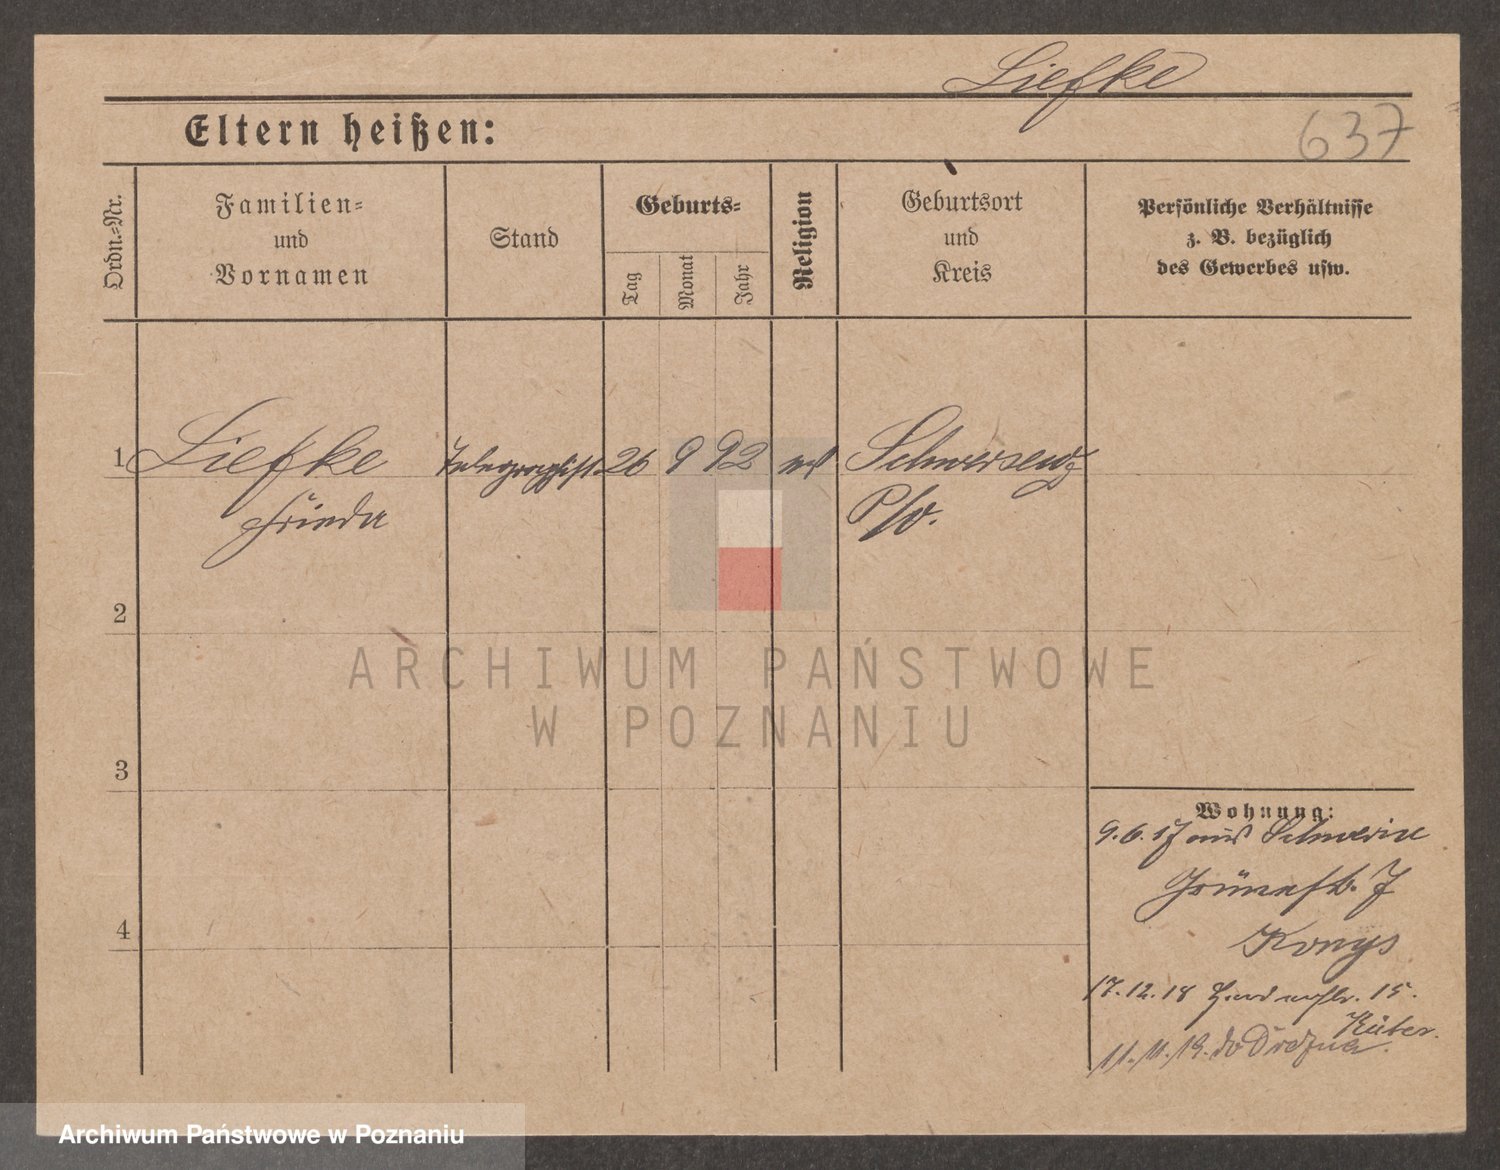 Liefke
Eltern heißen:
637
Ordn.-Nr.
Familien-
und
Vornamen
Stand
Geburts-
Tag
Monat
Jahr
Religion
Geburtsort
und
Kreis
Persönliche Verhältnisse
z. B. bezüglich
des Gewerbes usw.
1 Liefke Telegraphist. 26 9 92 Schwersenz
Frieda
2
3
4
Wohnung:
9.6.17 aus Schwerin
Grünestr. 7
17.12.18 15.
11.11.19. do Drezna.
ARCHIWUM PAŃSTWOWE
W POZNANIU
Archiwum Państwowe w Poznaniu